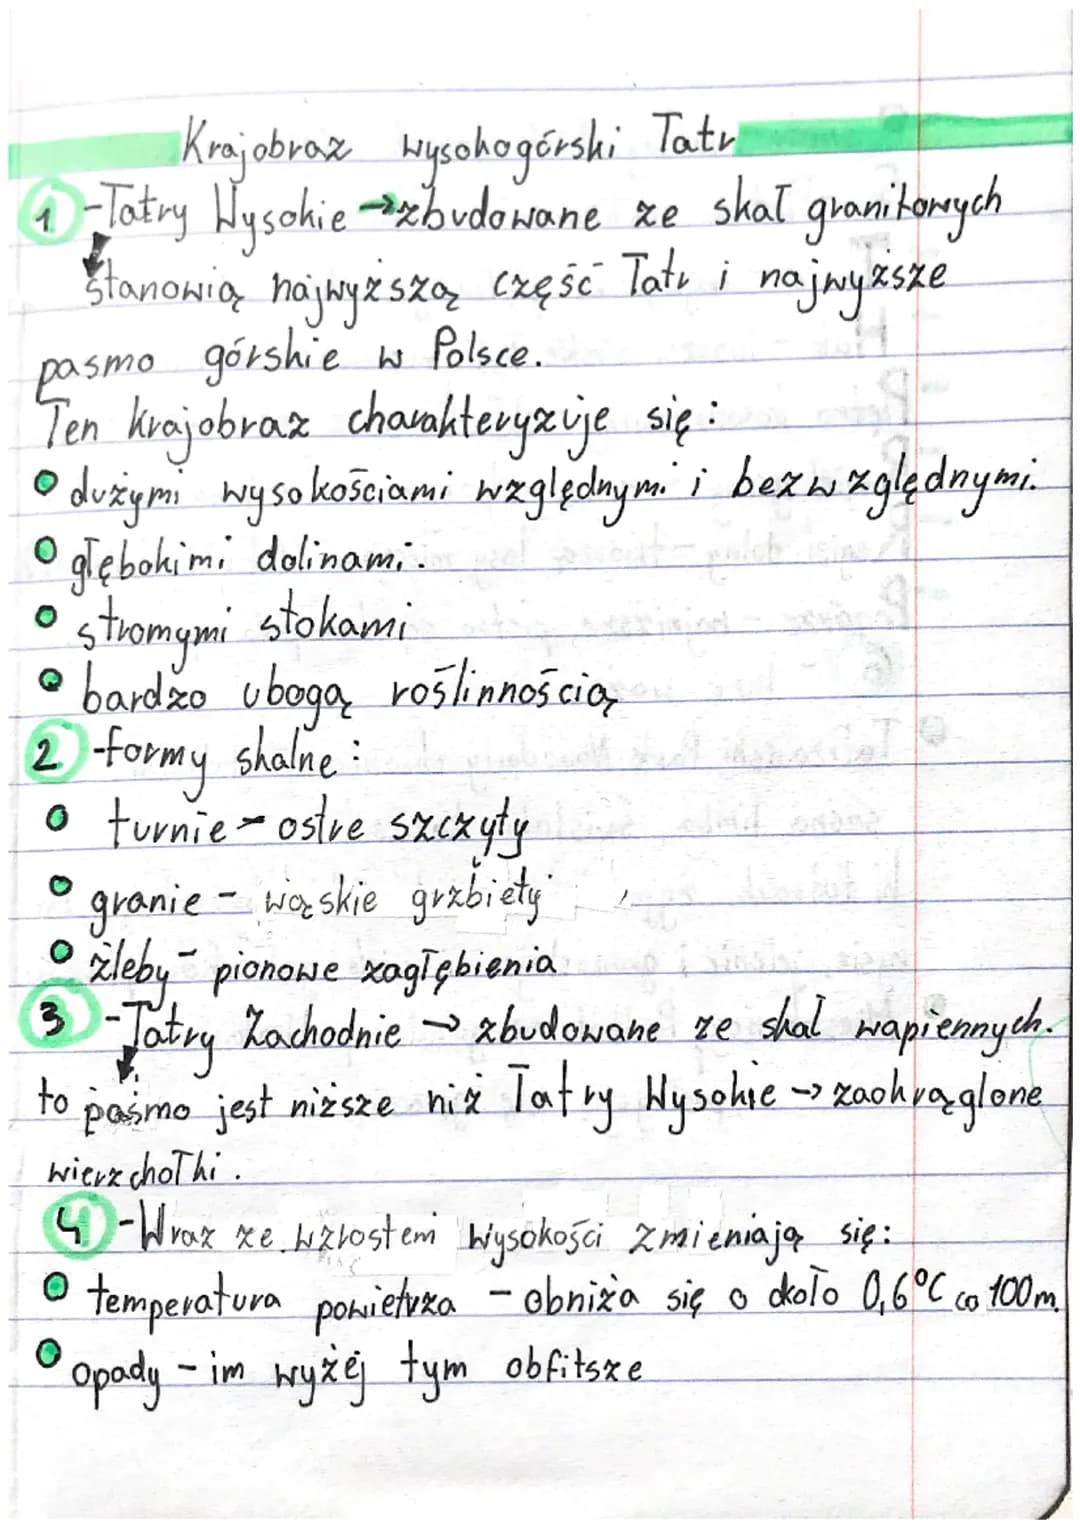 Krajobraz wysokogórski Tatr
1 -Tatry Wysokie → zbudowane ze skał granitowych
stanowią najwyższą część Tatr i najwyższe
pasmo górskie w Polsce.
Ten krajobraz charakteryzuje się:
• dużymi wysokościami względnymi i bezwzględnymi.
• głębokimi dolinami.
• stromymi stokami
• bardzo ubogą roślinnością
2 -formy skalne:
• turnie - ostre szczyty
• granie - wąskie grzbiety
• żleby - pionowe zagłębienia
3 -Tatry Zachodnie → zbudowane ze skał wapiennych.
to pasmo jest niższe niż Tatry Wysokie → zaokrąglone
wierzchołki.
4 -Wraz ze wzrostem wysokości zmieniają się:
• temperatura powietrza - obniża się o około 0,6°C co 100m.
• opady - im wyżej tym obfitsze